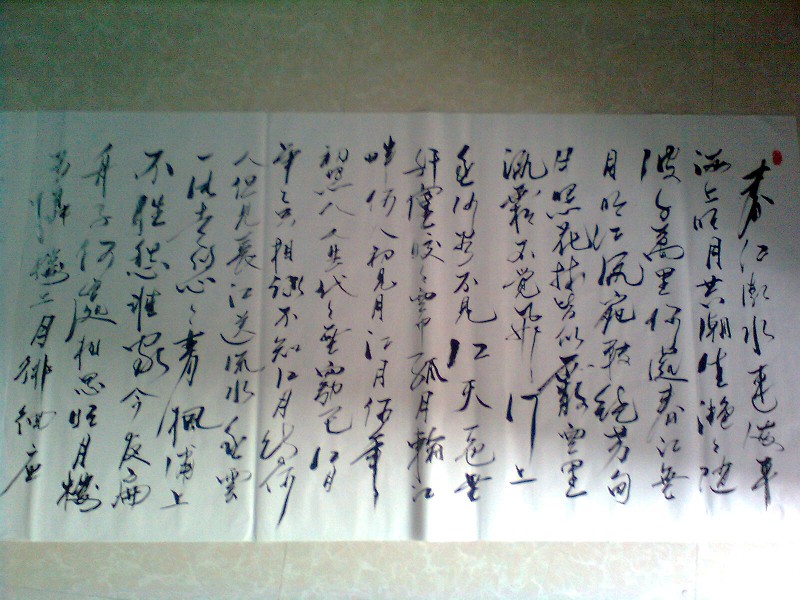 春江潮水連海平
海上明月共潮生灩々隨
波千萬里何處春江無
月明江流宛轉繞芳甸
月照花林皆似霰空里
流霜不覺飛汀上
白沙看不見江天一色無
纤塵皎々空中孤月輪江
畔何人初見月江月何年
初照人人生代々無窮已江月
年々只相似不知江月待何
人但見長江送流水白雲
一片去悠々青楓浦上
不勝愁誰家今夜扁
舟子何處相思明月樓
可憐樓上月徘徊應